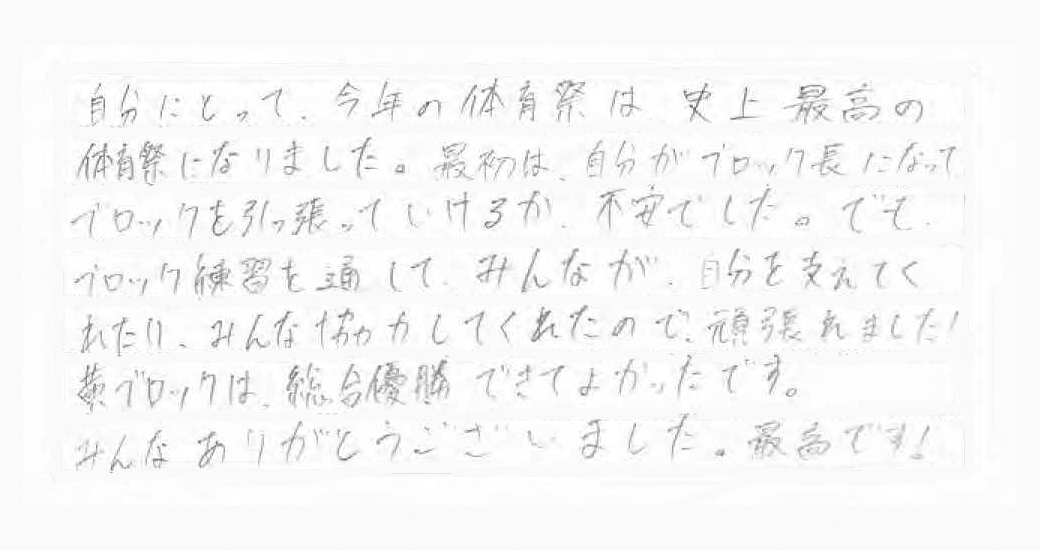 自分にとって、今年の体育祭は史上最高の
体育祭になりました。最初は、自分がブロック長になって
ブロックを引っ張っていけるか、不安でした。でも、
ブロック練習を通して、みんなが、自分を支えてく
れたり、みんな協力してくれたので、頑張れました!
黄ブロックは、総合優勝できてよかったです。
みんなありがとうございました。最高です!